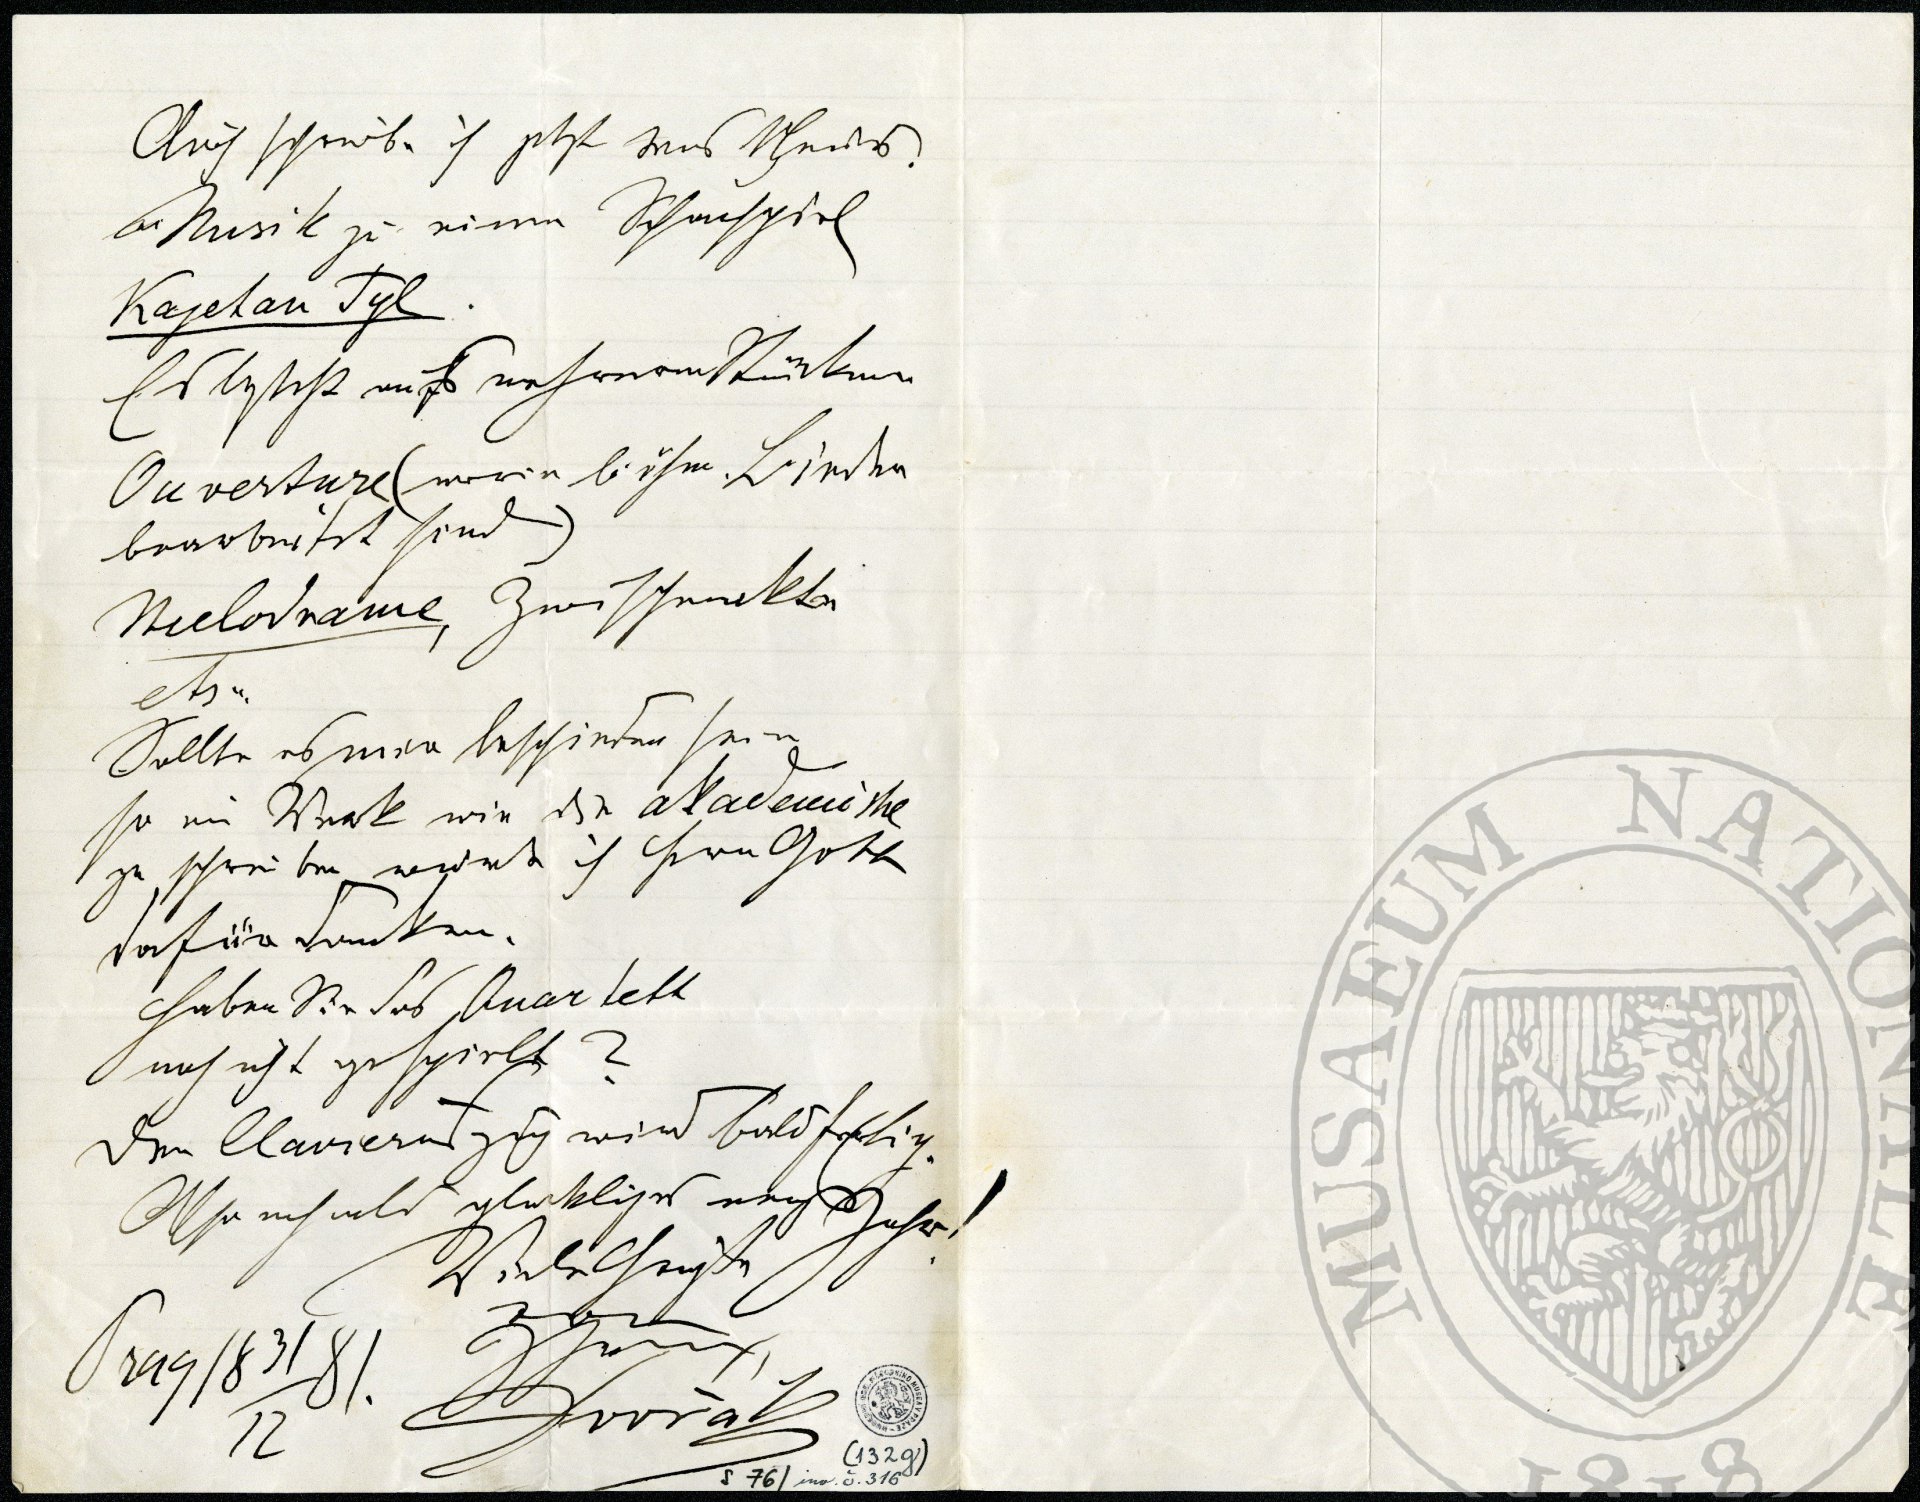 Auch schreibe ich jetzt was Neues.
die Musik zu einem Schauspiel
Kajetan Tyl.
Es besteht aus mehreren Stücken
Ouverture (worin böhm. Lieder
bearbeitet sind)
Melodrame, Zwischenakte
etz.
Sollte es mir beschieden sein
so ein Werk wie die akademische
zu schreiben würde ich Herrn Gott
dafür danken.
Haben Sie das Quartett
noch nicht gespielt?
Der Clavierauszug wird bald fertig.
Also nochmals glückliches neues Jahr!
Viele Grüße
von
Ihrem,
Dvořák
Prag 18 31/12 81.
(132g)
S 76/ inv. č. 316
MUSAEUM NATIONALE
1818